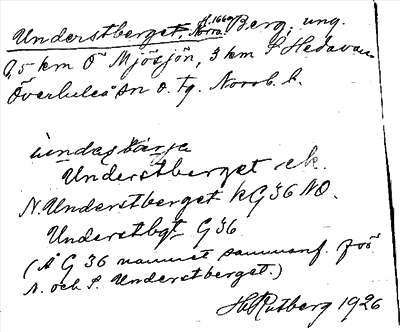 Understberget, Norra, H. 1660 Berg, ung.
0,5 km Ö Mjösjön, 3 km S Hedavan
Överluleå sn o. tg. Norrb. l.
undasbärja
Understberget ek.
N. Understberget kG 36 NO.
Understbgt G 36
(Å G 36 namnet sammanf. för
N. och S. Understberget.)
H Rutberg 1926